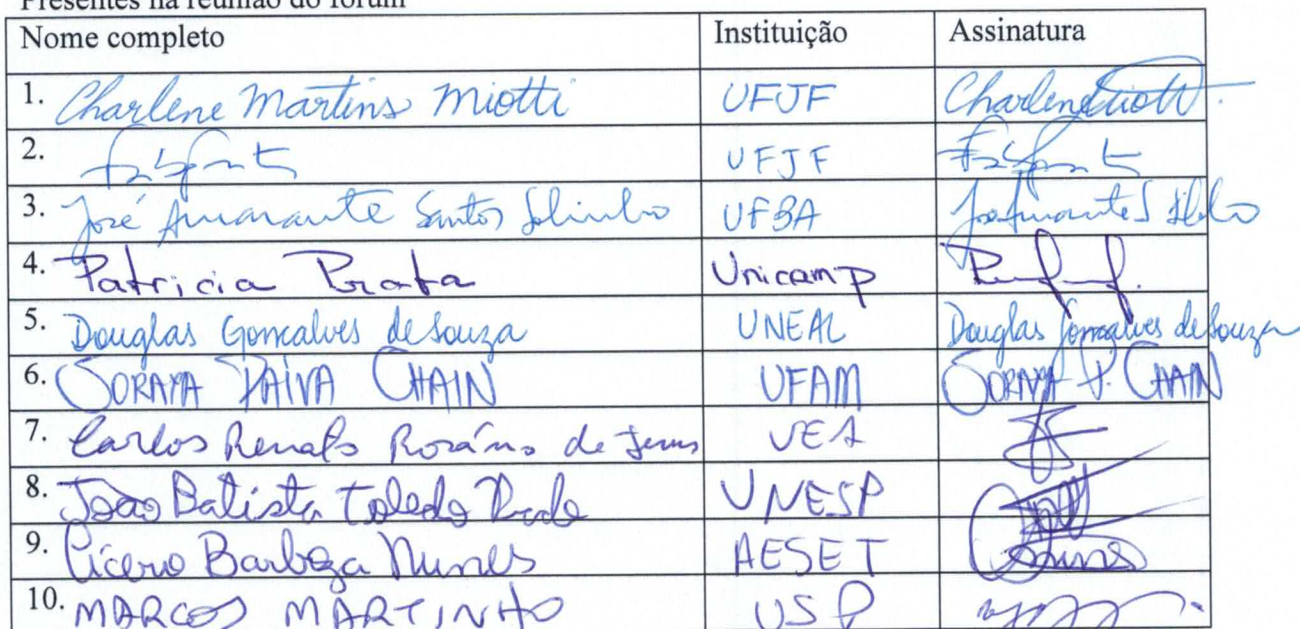 Presentes na reunião do fórum
Nome completo Instituição Assinatura
1. Charlene Martins Miotti UFJF Charlene Miotti
2. UFJF
3. José Amarante Santos Sobrinho UFBA
4. Patricia Prata Unicamp
5. Douglas Gonçalves de Souza UNEAL Douglas Gonçalves de Souza
6. SORAYA PAIVA CHAIN UFAM SORAYA P. CHAIN
7. Carlos Renato Rosário de Jesus UEA
8. João Batista Toledo Prado UNESP
9. Cícero Barboza Nunes AESET
10. MARCOS MARTINHO USP